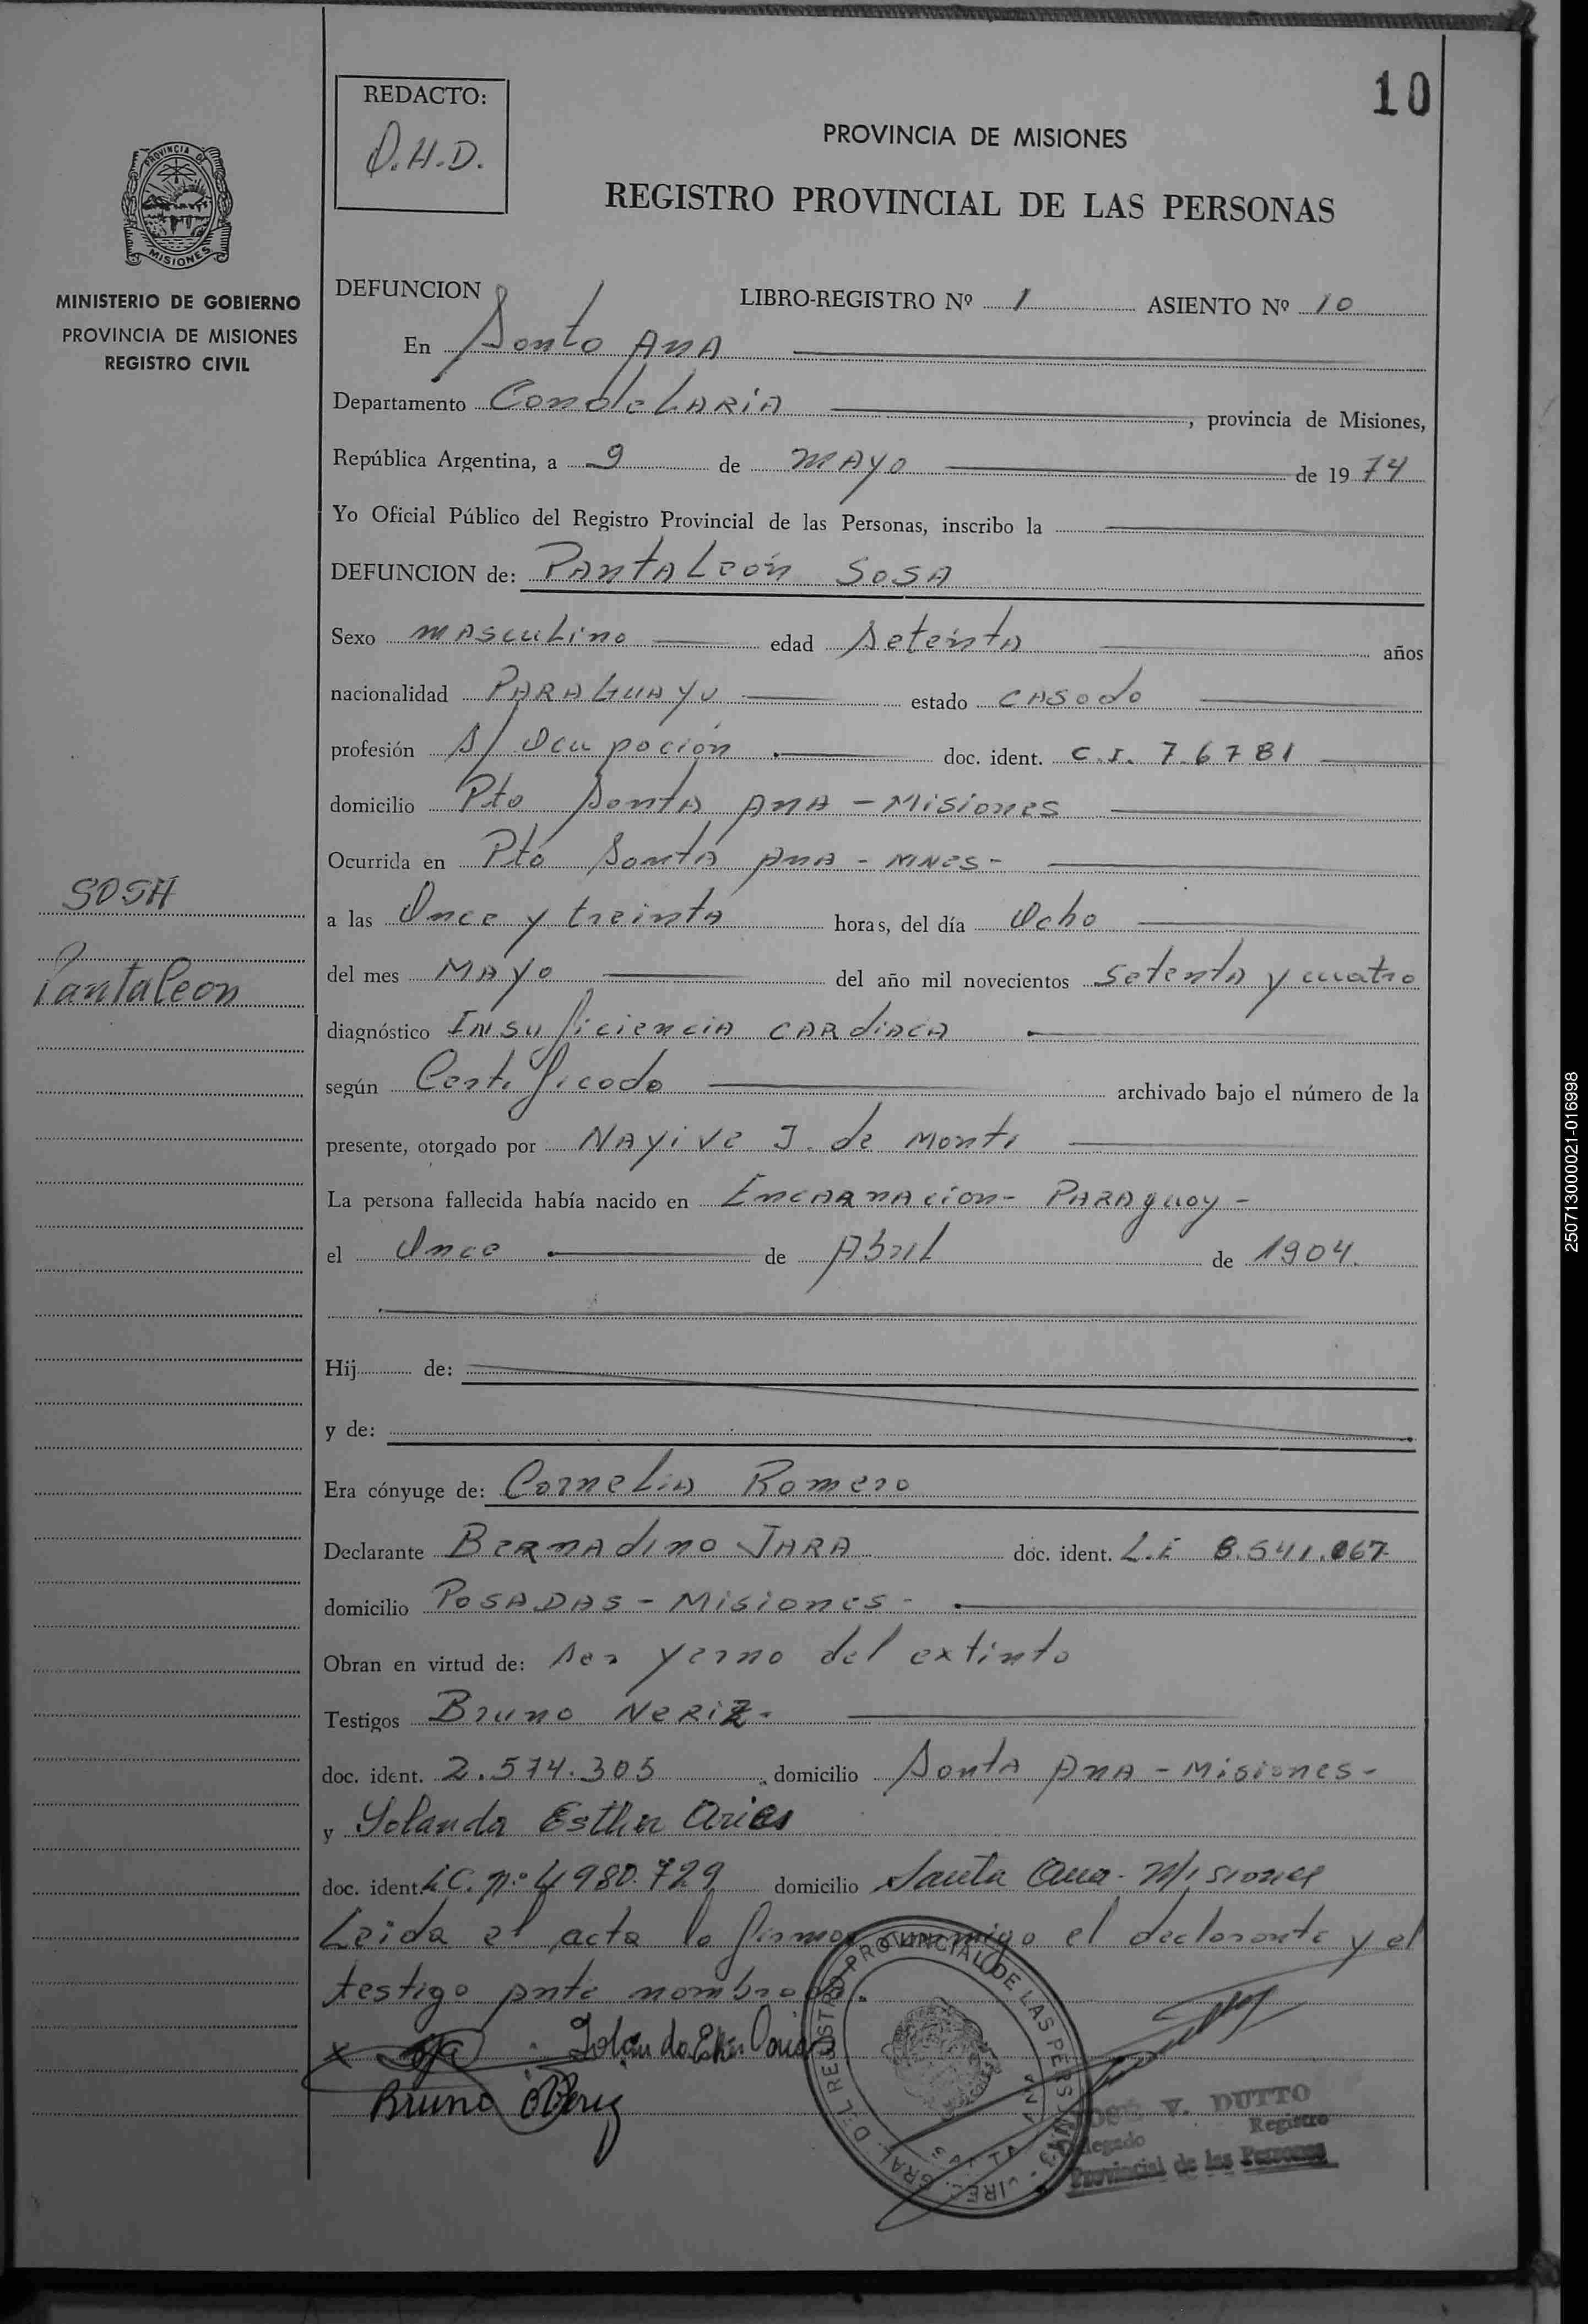 10
REDACTO:
O.H.D.
PROVINCIA DE MISIONES
REGISTRO PROVINCIAL DE LAS PERSONAS
PROVINCIA DE
MISIONES
MINISTERIO DE GOBIERNO
PROVINCIA DE MISIONES
REGISTRO CIVIL
DEFUNCION
LIBRO-REGISTRO Nº 1 ASIENTO Nº 10
En Santa Ana
Departamento CandeLARiA, provincia de Misiones,
República Argentina, a 9 de MAyo de 1974
Yo Oficial Público del Registro Provincial de las Personas, inscribo la
DEFUNCION de: PantaLeón SosA
Sexo mAscuLino edad Setenta años
nacionalidad PARAGuAyo estado CAsado
profesión s/ Ocupación doc. ident. C.I. 76781
domicilio Pto Santa AnA - Misiones
Ocurrida en Pto Santa AnA - MNes -
a las Once y treinta horas, del día Ocho
del mes MAyo del año mil novecientos Setenta y cuatro
diagnóstico Insuficiencia CARdiACA
según Certificado archivado bajo el número de la
presente, otorgado por NAyive J. de Monti
La persona fallecida había nacido en EncARnAcion - PARAguay -
el Once de Abril de 1904.
Hij de:
y de:
Era cónyuge de: CorneLia Romero
Declarante BeRnAdino JARA doc. ident. L.E 8.541.067
domicilio PosADAS - Misiones -
Obran en virtud de: Ser yerno del extinto
Testigos Bruno NeRiz -
doc. ident. 2.574.305 domicilio Santa AnA - Misiones -
y Yolanda Esther Arias
doc. ident. L.C. nº 4980.729 domicilio Santa Ana - Misiones
Leida el acta la firman conmigo el declarante y el
testigo ante nombrado.
SOSA
Pantaleon
Yolanda Esther Arias
Bruno Neriz
DIREC. GRAL. DEL REGISTRO PROVINCIAL DE LAS PERSONAS
JOSE V. DUTTO
Delegado Registro
Provincial de las Personas
250713000021-016998